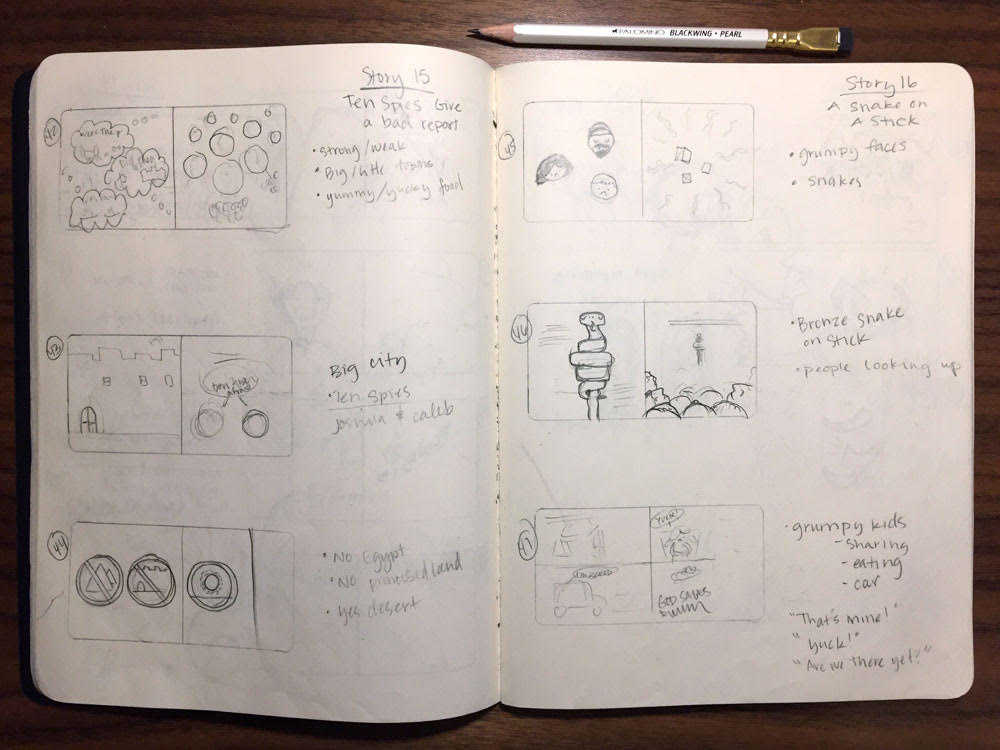 PALOMINO BLACKWING • PEARL
Story 15
Ten Spies Give
a bad report
• strong/weak
• Big/little towns
• yummy/yucky food
42
43
Big city
• Ten Spies
Joshua & Caleb
44
• No Egypt
• No promised Land
• yes desert
Story 16
A Snake on
A Stick
45
• grumpy faces
• snakes
46
• Bronze Snake
on stick
• people looking up
47
YUCK!
GOD SAVES
• grumpy kids
- sharing
- eating
- car
"That's mine!"
"Yuck!"
"Are we there yet?"